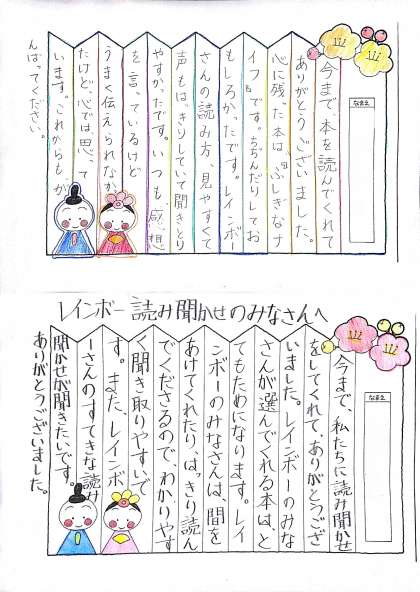 なまえ
今まで本を読んでくれて
ありがとうございました。
心に残った本は『ふしぎなナ
イフ』です。ちぢんだりしてお
もしろかったです。レインボー
さんの読み方、見やすくて
声もはっきりしていて聞きとり
やすかったです。いつも感想
を言っているけど
うまく伝えられなか
たけど、心では思って
います。これからもが
んばってください。
レインボー読み聞かせのみなさんへ
なまえ
今まで、私たちに読み聞かせ
をしてくれて、ありがとうござ
いました。レインボーのみな
さんが選んでくれる本は、と
てもためになります。レイ
ンボーのみなさんは、間を
あけてくれたり、はっきり読ん
でくださるので、わかりやす
く聞き取りやすいで
す。また、レインボ
ーさんのすてきな読み
聞かせが聞きたいです。
ありがとうございました。